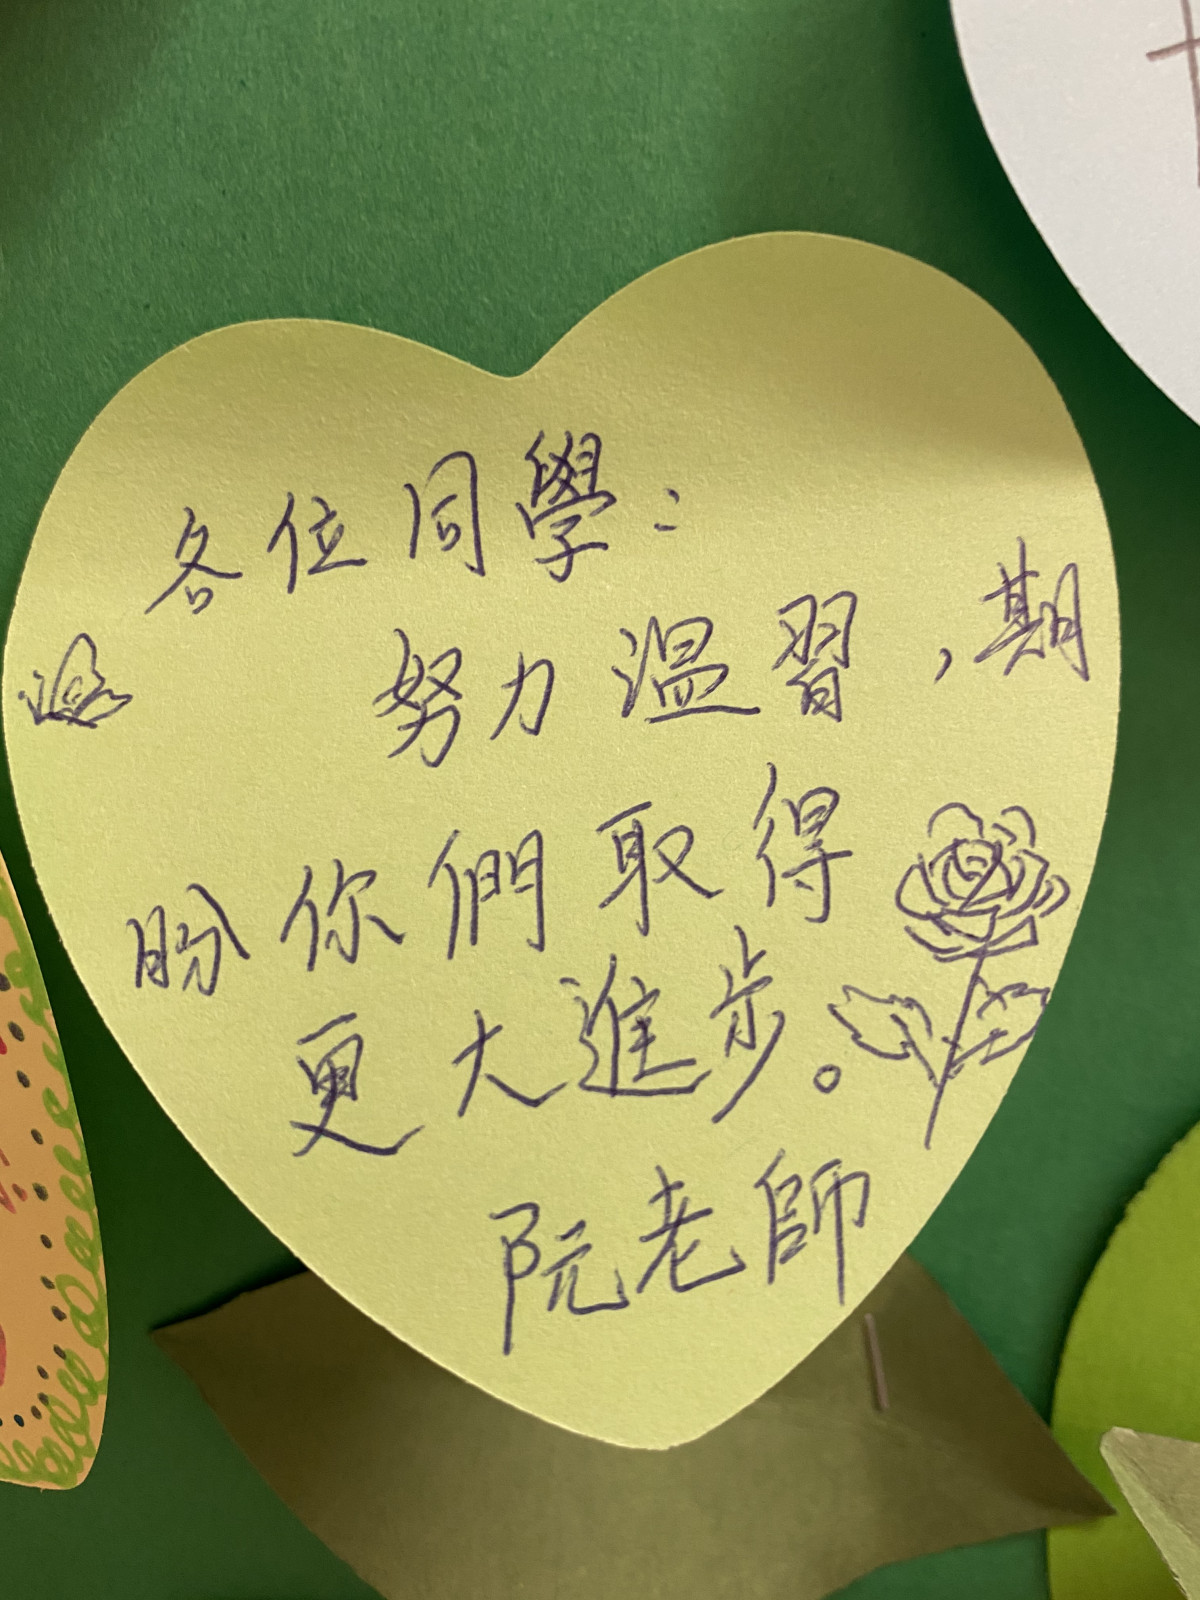 各位同學：
努力溫習，期
盼你們取得
更大進步。
阮老師